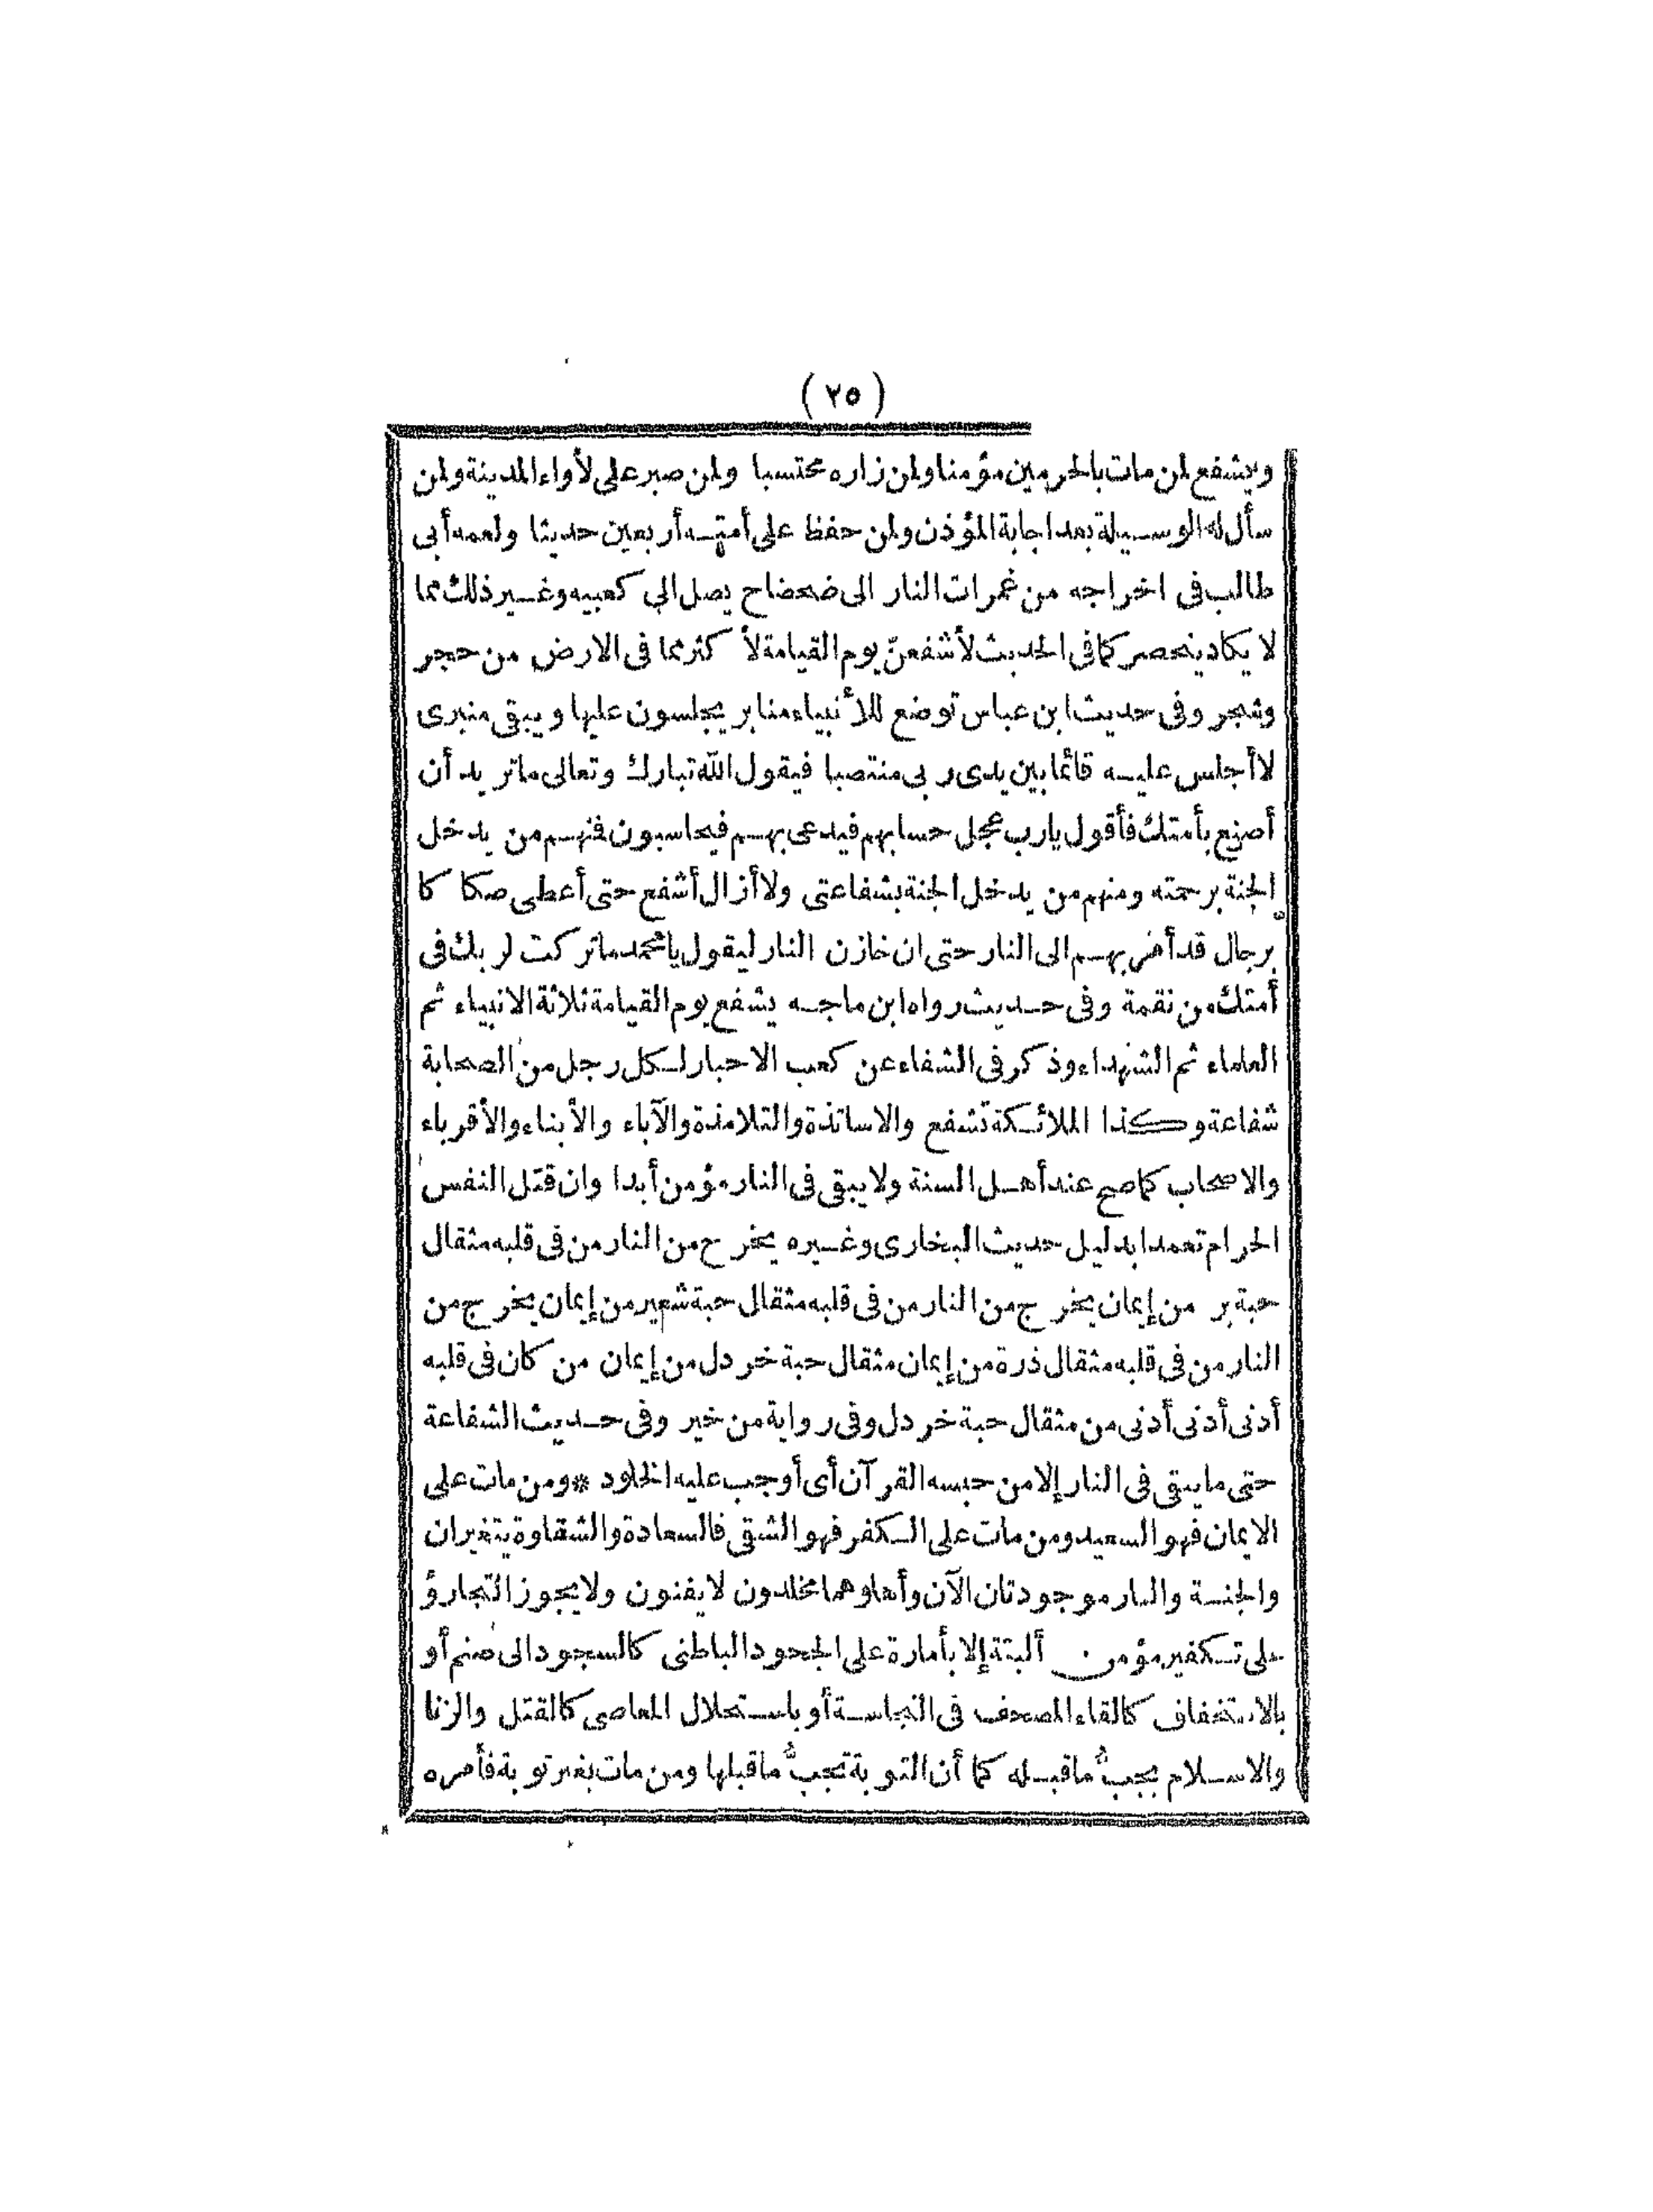 (٢٥)
ويشفع لمن مات بالحرمين مؤمنا ولمن زاره محتسبا ولمن صبر على لأواء المدينة ولمن
سأل له الوسيلة بعد اجابة المؤذن ولمن حفظ على أمته أربعين حديثا ولعمه أبى
طالب فى اخراجه من غمرات النار الى ضحضاح يصل الى كعبيه وغير ذلك مما
لا يكاد ينحصر كما فى الحديث لأشفعنّ يوم القيامة لأ كثر مما فى الارض من حجر
وشجر وفى حديث ابن عباس توضع للأنبياء منابر يجلسون عليها ويبقى منبرى
لا أجلس عليه قائما بين يدى ربى منتصبا فيقول الله تبارك وتعالى ما تريد أن
أصنع بأمتك فأقول يارب عجل حسابهم فيدعى بهم فيحاسبون فمنهم من يدخل
الجنة برحمته ومنهم من يدخل الجنة بشفاعتى ولا أزال أشفع حتى أعطى صكا كا
برجال قد أمر بهم الى النار حتى ان خازن النار ليقول يا محمد ما تركت لربك فى
أمتك من نقمة وفى حديث رواه ابن ماجه يشفع يوم القيامة ثلاثة الانبياء ثم
العلماء ثم الشهداء وذكر فى الشفاء عن كعب الاحبار لكل رجل من الصحابة
شفاعة وكذا الملائكة تشفع والاساتذة والتلامذة والآباء والأبناء والأقرباء
والاصحاب كما صح عند أهل السنة ولا يبقى فى النار مؤمن أبدا وان قتل النفس
الحرام تعمدا بدليل حديث البخارى وغيره يخرج من النار من فى قلبه مثقال
حبة بر من إيمان يخرج من النار من فى قلبه مثقال حبة شعير من إيمان يخرج من
النار من فى قلبه مثقال ذرة من إيمان مثقال حبة خردل من إيمان من كان فى قلبه
أدنى أدنى أدنى من مثقال حبة خردل وفى رواية من خير وفى حديث الشفاعة
حتى ما يبقى فى النار إلا من حبسه القرآن أى أوجب عليه الخلود * ومن مات على
الايمان فهو السعيد ومن مات على الكفر فهو الشقى فالسعادة والشقاوة يتغيران
والجنة والنار موجودتان الآن وأهلوهما مخلدون لا يفنون ولا يجوز التجارؤ
على تكفير مؤمن ألبتة إلا بأمارة على الجحود الباطنى كالسجود الى صنم أو
بالاستخفاف كالقاء المصحف فى النجاسة أو باستحلال المعاصى كالقتل والزنا
والاسلام يجبّ ما قبله كما أن التوبة تجبّ ما قبلها ومن مات بغير توبة فأمره